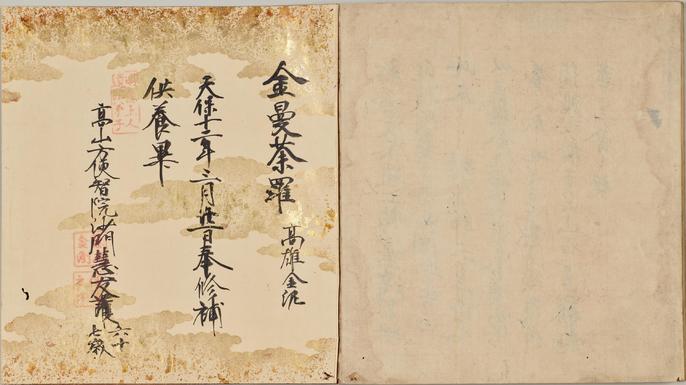 金曼荼羅 高雄金泥
天保十二年三月廿一日奉修補
供養畢
高山方便智院沙門慧友護 六十七歳